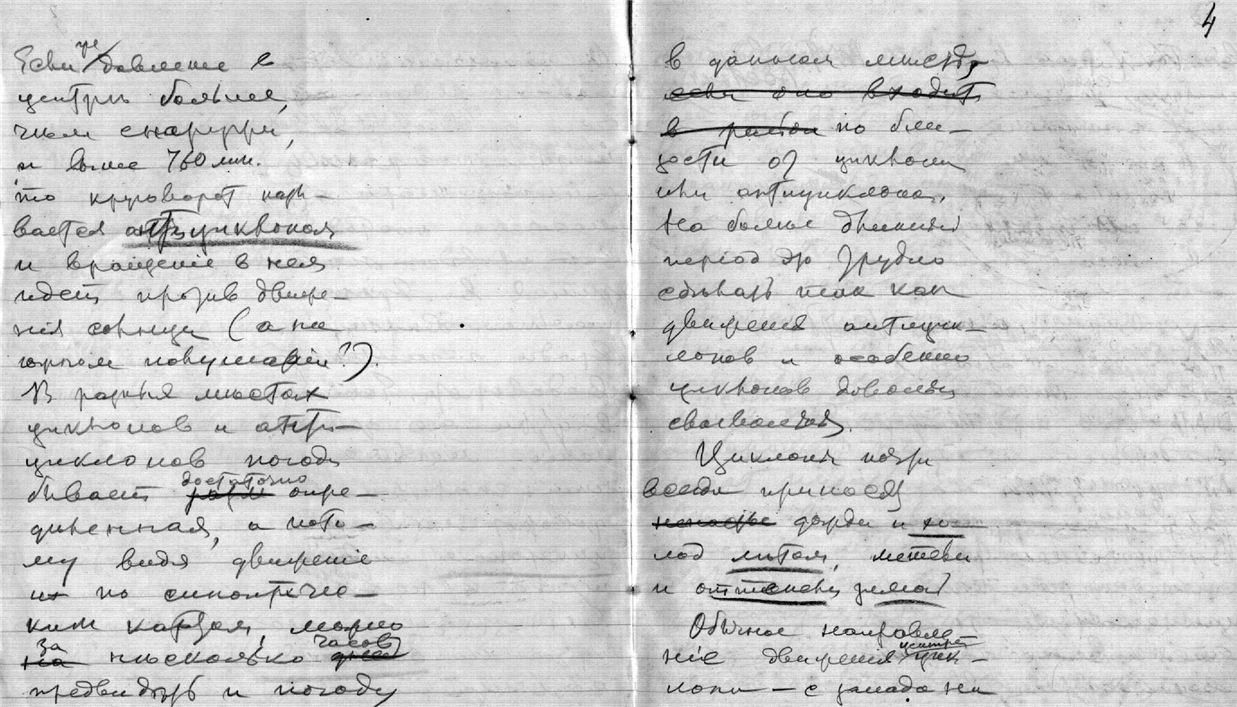 Если же давленіе в
центрѣ больше,
чѣм снаружи,
и выше 760 мм.
то круговорот назы-
вается антициклоном
и вращеніе в нем
идет против движе-
нія солнца (а на
южном полушаріи?).
В разных мѣстах
циклонов и анти-
циклонов погода
бывает достаточно опре-
дѣленная, а пото-
му видя движеніе
их по синоптиче-
ким картам, можно
за на нѣсколько часов дней
предвидѣть и погоду
4
в данном мѣстѣ,
если оно входит
в район по бли-
зости от циклона
или антициклона.
На более длинный
період это трудно
сдѣлать так как
движенія антицик-
лонов и особенно
циклонов довольно
своевольны.
Циклоны почти
всегда приносят
ненастье дожди и хо-
лод лѣтом, метели
и оттепель зимой
Обычное направле-
ніе движенія центра цик-
лона — с запада на